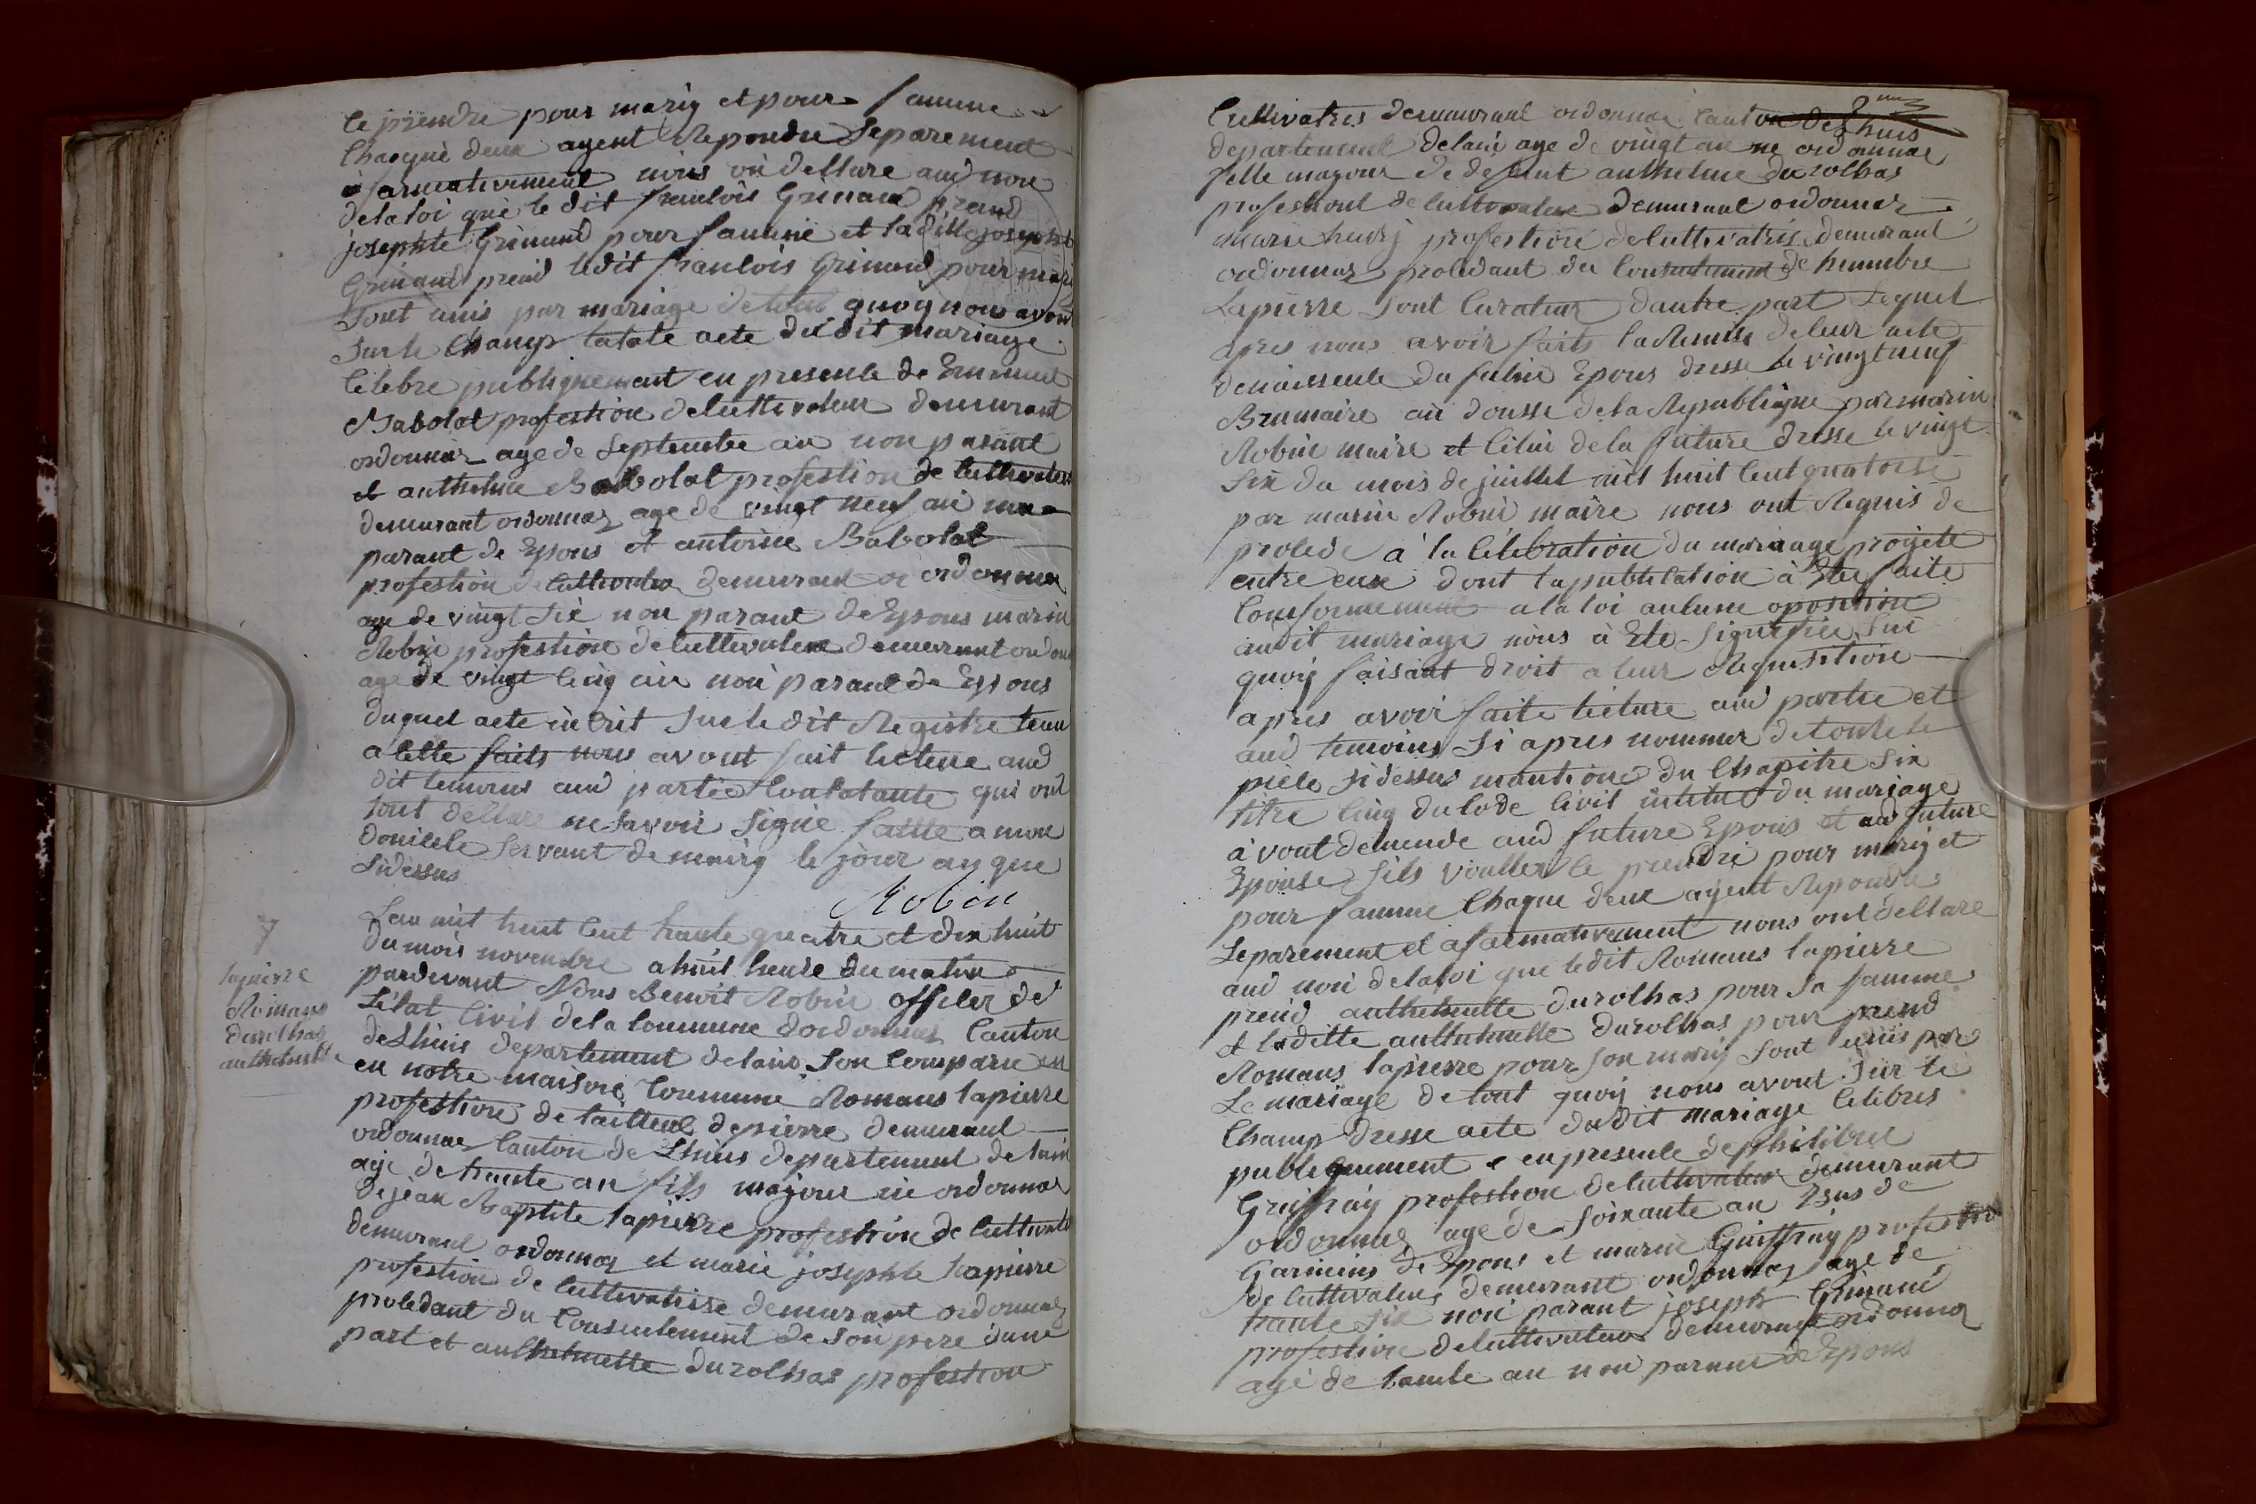 le prendre pour mariy et pour famme
Chaquè deux ayent Repondu Separement
afarmativement nous on dellare aud non
dela loi què le dit franlois Grinand prend
josephte Grinand pour famme et ladille josephte
Grinand prend ledit franlois Grinand pour mari
Sont unis par mariage de tout quoy nous avont
Sur le Champ acte du dit mariage
lelebre publiquement en presenle de
Babolat profestion de lultivateur demurant
ordonnaz age de Septente an non parant
et anthelme Babolat profestion de lultivateur
demurant ordonnaz age de vingt neuf an non
parant de Epous et antoine Babolat
profestion de lultivateur demurant a ordonnaz
age de vingt Sie non parant de Epous marin
Robin profestion de lultivateur demurant ordonnaz
age de vingt linq an non parant de Epous
duquel acte inlrit Sur le dit Registre tenu
a lette faits nous avont fait lecture aud
dit temoins aud partie qui ont
tout dellare ne Savoir Signe faitte a mon
domicele Servant de mairy le jour an que
Sidessus
Robin
7
lapierre
Romans
durolhas
anthelmette
Lan mit huit lent trante quatre et dix huit
du mois novembre a huit heure du matin
pardevant Nous Benoit Robin offiler de
Létat livil dela loummune dordonnaz lanton
de Lhuis departement delain Son lomparu en
en notre maison loummune Romans lapierre
profestion de tailleur depierre demurant
ordonnaz lanton de Lhuis departement de lain
age de trante an fils majour nè ordonnaz
de jean Baptite lapierre profestion de lultivateur
demurant ordonnaz et marie josephte lapierre
profestion de lultivatrise demurant ordonnaz
proledant du lonsentement de Son pere dune
part et anthelmette durolhas profestion
lultivatris demurant ordonnaz lanton de Lhuis
departement delain age de vingt an ne ordonnaz
felle majour de defunt anthelme durolhas
profestiont de lultivateur demurant ordonnaz
marie henry profestion de lultivatris demurant
ordonnaz proledant du lonsentement de humbre
Lapierre Sont lurateur dautre part Lequel
apres nous avoir faits la Remise de leur acte
denaissenle du futur Epous dresse le vingt neuf
Brumaire an dousse dela Republique par marin
Robin maire et lèlui dela future dresse le vingt
Six du mois de juillet mit huit lent quatorse
par marin Robin maire nous ont Requis de
proledè à la lèlebration du mariage projete
entre eux dont la publilation à Ete faite
lonformement a la loi aulune oposition
audit mariage nous à Ete Signifiée Sur
quoy faisant droit a leur Requisition
apres avoir faite lecture aud partie et
aud temoins Si apres nommer de toute le
pièle Sidessus mantione du Chapitre Six
titre linq du lode livil intitul du mariage
avont demende aud future Epous et ad future
Epouse Sils voulles le prendre pour mariy et
pour famme Chaque deux ayent Repondu
Separement et afarmativement nous ont dellare
aud non dela loi que ledit Romans lapierre
prend anthelmette durolhas pour Sa famme
et ladille anthelmette durolhas pour prend
Romans lapierre pour Son mariy Sont unis par
Le mariage de tout quoy nous avont Sur le
Champ dresse acte dudit mariage lelebres
publiquement en presenle de philibert
Guiffray profestion de lultivateur demurant
ordonnaz age de Soixante an de
Garmins de Epous et marin Guiffray profestion
de lultivateur demurant ordonnaz age de
trante Six non parant joseph Grinand
profestion delultivateur demurant ordonnaz
age de trante an non parant de Epous